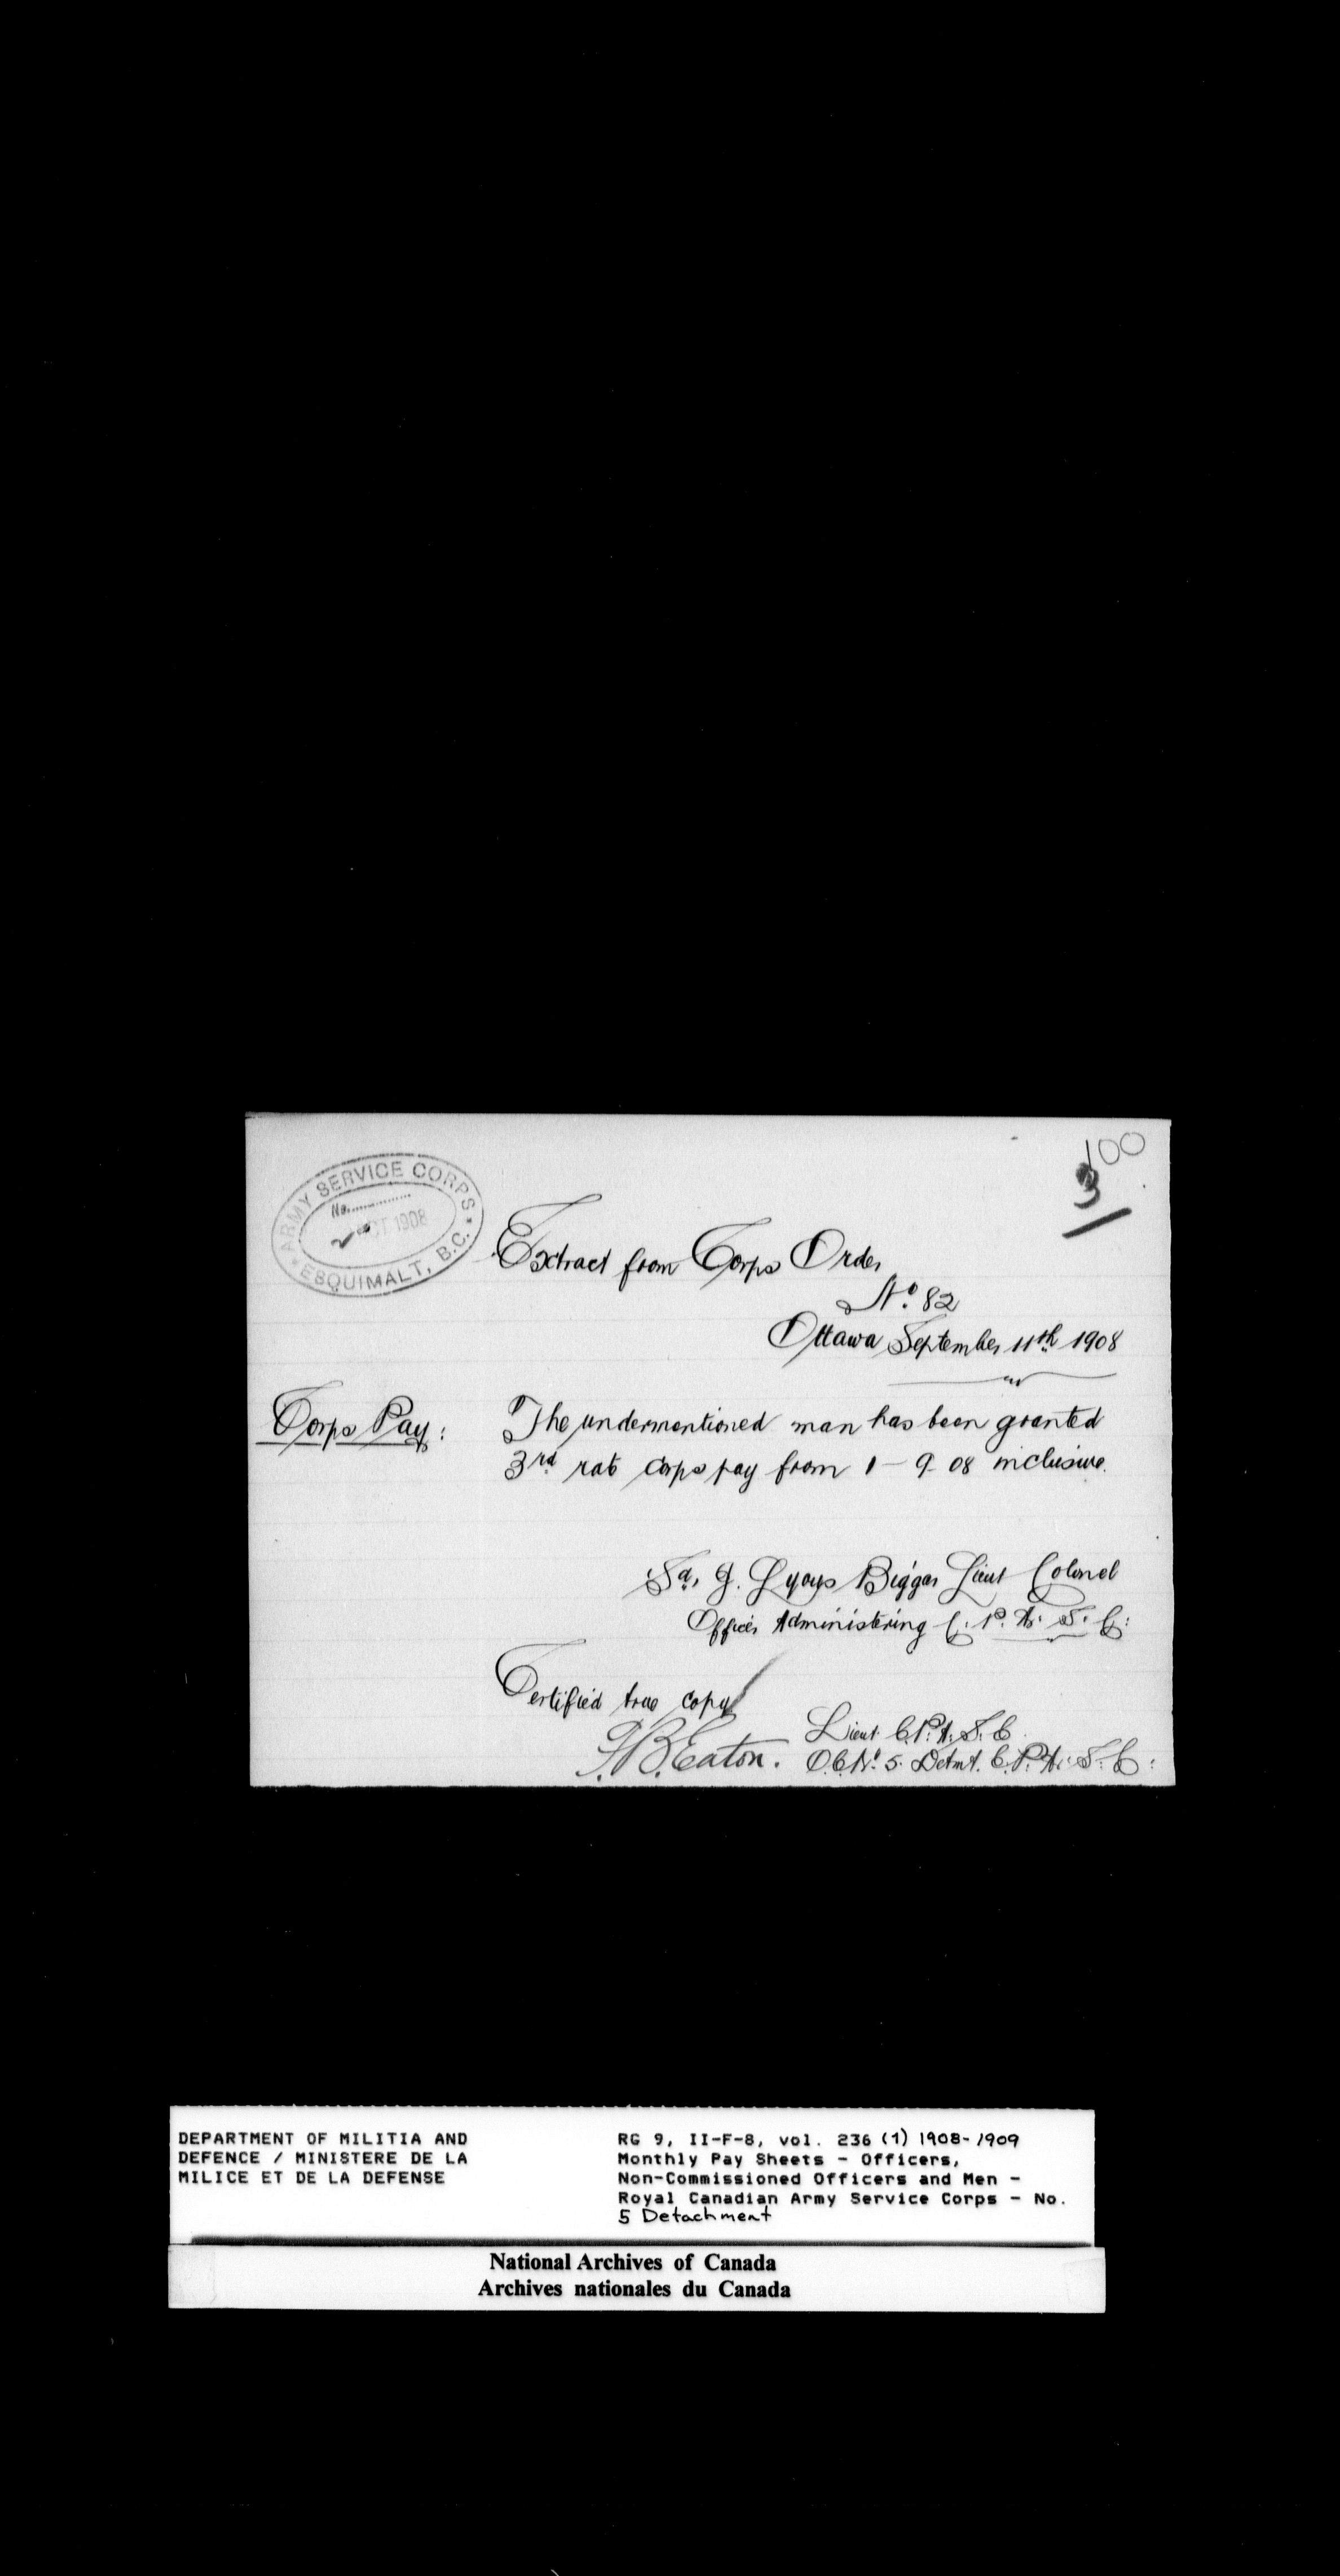 100
3
ARMY SERVICE CORPS
No.
2 OCT 1908
ESQUIMALT, B.C.
Extract from Corps Order
No. 82
Ottawa September 11th 1908
Corps Pay:
The undermentioned man has been granted
3rd rate Corps pay from 1-9-08 inclusive.
Sd, J. Lyons Biggar Lieut Colonel
Officer Administering C. P. A. S. C:
Certified true copy
Lieut. C. P. A. S. C.
F.B. Eaton. O.C. No. 5. Detmt. C. P. A. S. C:
DEPARTMENT OF MILITIA AND
DEFENCE / MINISTERE DE LA
MILICE ET DE LA DEFENSE
RG 9, II-F-8, vol. 236 (1) 1908-1909
Monthly Pay Sheets - Officers,
Non-Commissioned Officers and Men -
Royal Canadian Army Service Corps - No.
5 Detachment
National Archives of Canada
Archives nationales du Canada